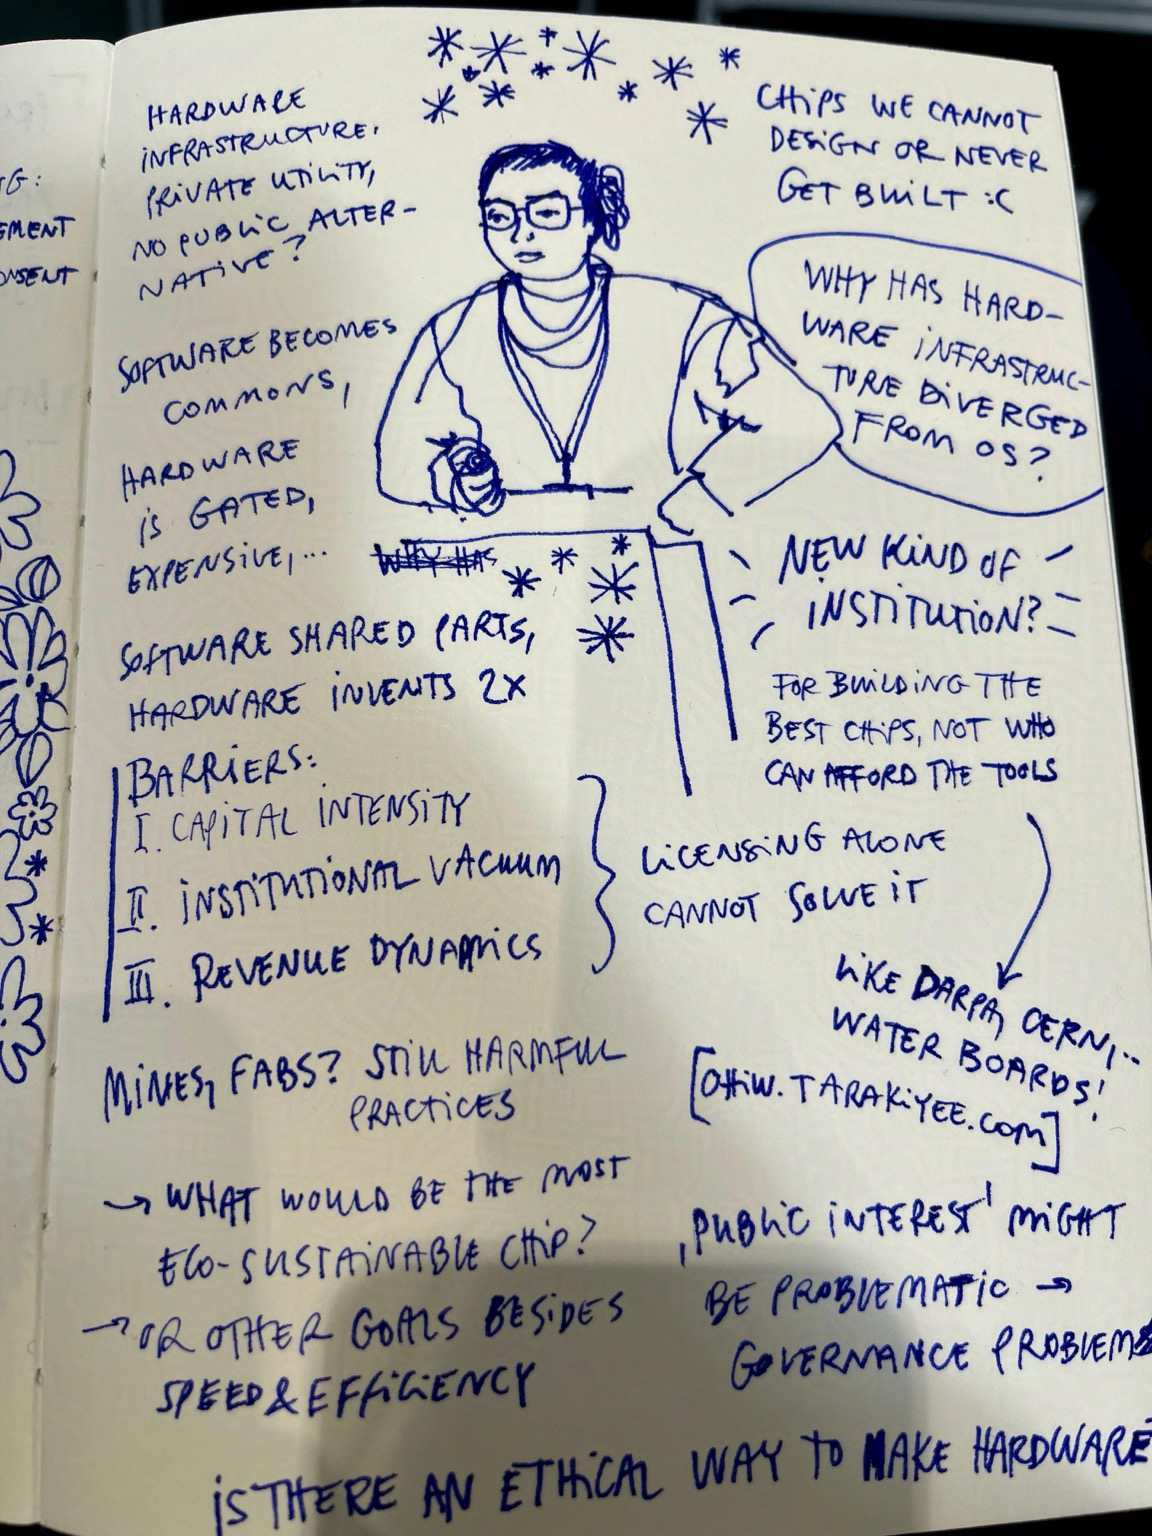 HARDWARE
INFRASTRUCTURE.
PRIVATE UTILITY,
NO PUBLIC ALTER-
NATIVE?
SOFTWARE BECOMES
COMMONS,
HARDWARE
IS GATED,
EXPENSIVE,...
WHY HAS
SOFTWARE SHARED PARTS,
HARDWARE INVENTS 2X
BARRIERS:
I. CAPITAL INTENSITY
II. INSTITUTIONAL VACUUM
III. REVENUE DYNAMICS
LICENSING ALONE
CANNOT SOLVE IT
MINES, FABS? STILL HARMFUL
PRACTICES
→ WHAT WOULD BE THE MOST
ECO-SUSTAINABLE CHIP?
→ OR OTHER GOALS BESIDES
SPEED & EFFICIENCY
CHIPS WE CANNOT
DESIGN OR NEVER
GET BUILT :C
WHY HAS HARD-
WARE INFRASTRUC-
TURE DIVERGED
FROM OS?
NEW KIND OF
INSTITUTION?
FOR BUILDING THE
BEST CHIPS, NOT WHO
CAN AFFORD THE TOOLS
LIKE DARPA, CERN,..
WATER BOARDS!
[OHIW.TARAKIYEE.COM]
‚PUBLIC INTEREST' MIGHT
BE PROBLEMATIC →
GOVERNANCE PROBLEMS
IS THERE AN ETHICAL WAY TO MAKE HARDWARE